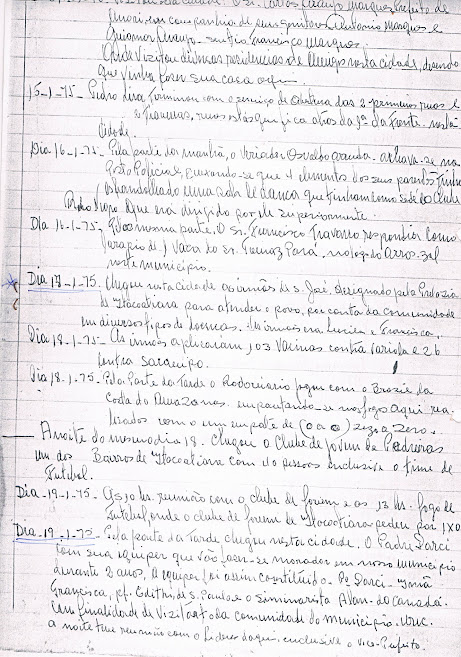 em companhia de seus genitores Antonio Marques e
Guiomar Araujo - seu tio Francisco Marques
que vizitou diversas residencias de amigos nesta cidade, dizendo
que vinha fazer sua casa aqui.
15-1-75 - Pedro Lira Terminou com o serviço de das 2 primeiras ruas e
Travessas, ruas estas que fica atras da 1ª da frente - nesta
Cidade.
Dia 16-1-75 - Pela parte da manhã, o Veriador Osvaldo achava-se na
Posto Policial, -se que 4 elementos dos seus parentes tinha
uma sede de danca que tinham como sede do clube
que era dirigido por ele superiormente.
Dia 16-1-75, Pela mesma parte, O Sr. Francisco Travasso respondeu como
de 1 Vaca do Sr. Tomaz Pará, no lago do Arrozal
neste município.
Dia 17-1-75. Chegou nesta cidade as irmãs de S. José, designado pela Prelazia
de Itacoatiara para atender o povo, por conta da comunidade
em diversos tipos de doencas. As irmãs era Lucina e Francisca,
Dia 18-1-75 - As irmãs aplicaram 103 Vacinas contra variola e 26
contra Sarampo.
Dia 18-1-75 - Pela Parte da Tarde o Rodoviario jogou com o Brazil da
Costa do Amazonas empantando-se nos jogo aqui rea-
lizados com o um empate de (0 a 0) zero a zero.
A noite do mesmo dia 18 - chegou o Clube de jovem de Pedreiras
um dos Bairros de Itacoatiara com 40 pessoas inclusive o time de
Futebol.
Dia - 19-1-75 - As 10 hs. reunião com o clube de jovem e as 13 hs - jogo de
Futebol, onde o clube de jovem de Itacoatiara perdeu por 1X0
Dia - 19-1-75 - Pela parte da Tarde chegou nesta cidade. O Padre Darci
com sua equiper que vão fazer-se morador em nosso município
durante 2 anos, A equiper foi assim constituida - Pe Darci - Irmã
Francisca, pf. Edith, de S. Paulo e o Siminarista Alan - do Canadá.
Com finalidade de Vizitar toda comunidade do município -
a noite teve reunião com os lideres daqui, inclusive o Vice-Prefeito.